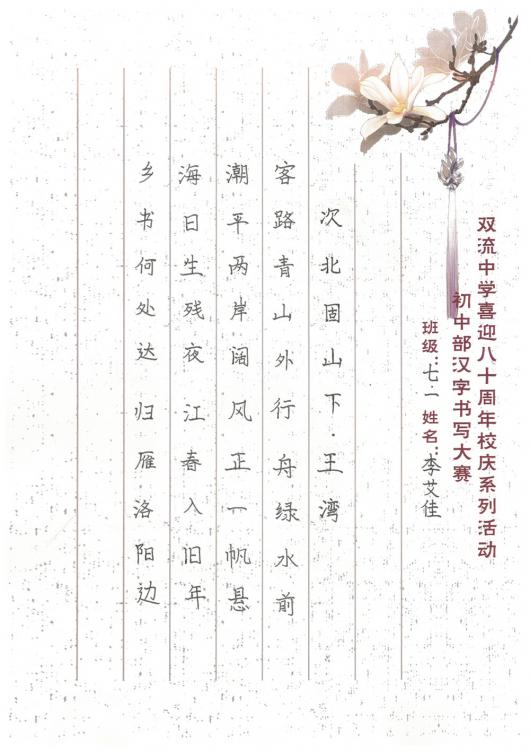 双流中学喜迎八十周年校庆系列活动
初中部汉字书写大赛
班级:七.一 姓名:李艾佳
次北固山下·王湾
客路青山外行舟绿水前
潮平两岸阔风正一帆悬
海日生残夜江春入旧年
乡书何处达归雁洛阳边